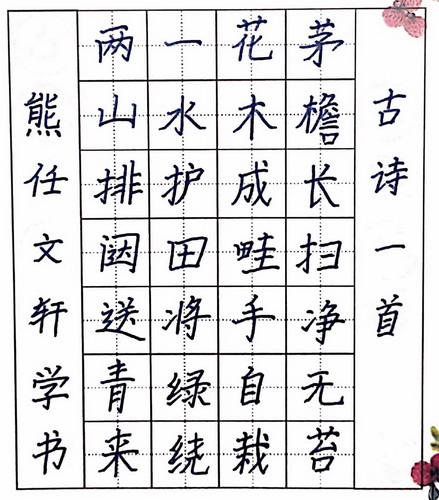 古诗一首
茅檐长扫净无苔
花木成畦手自栽
一水护田将绿绕
两山排闼送青来
熊任文轩学书